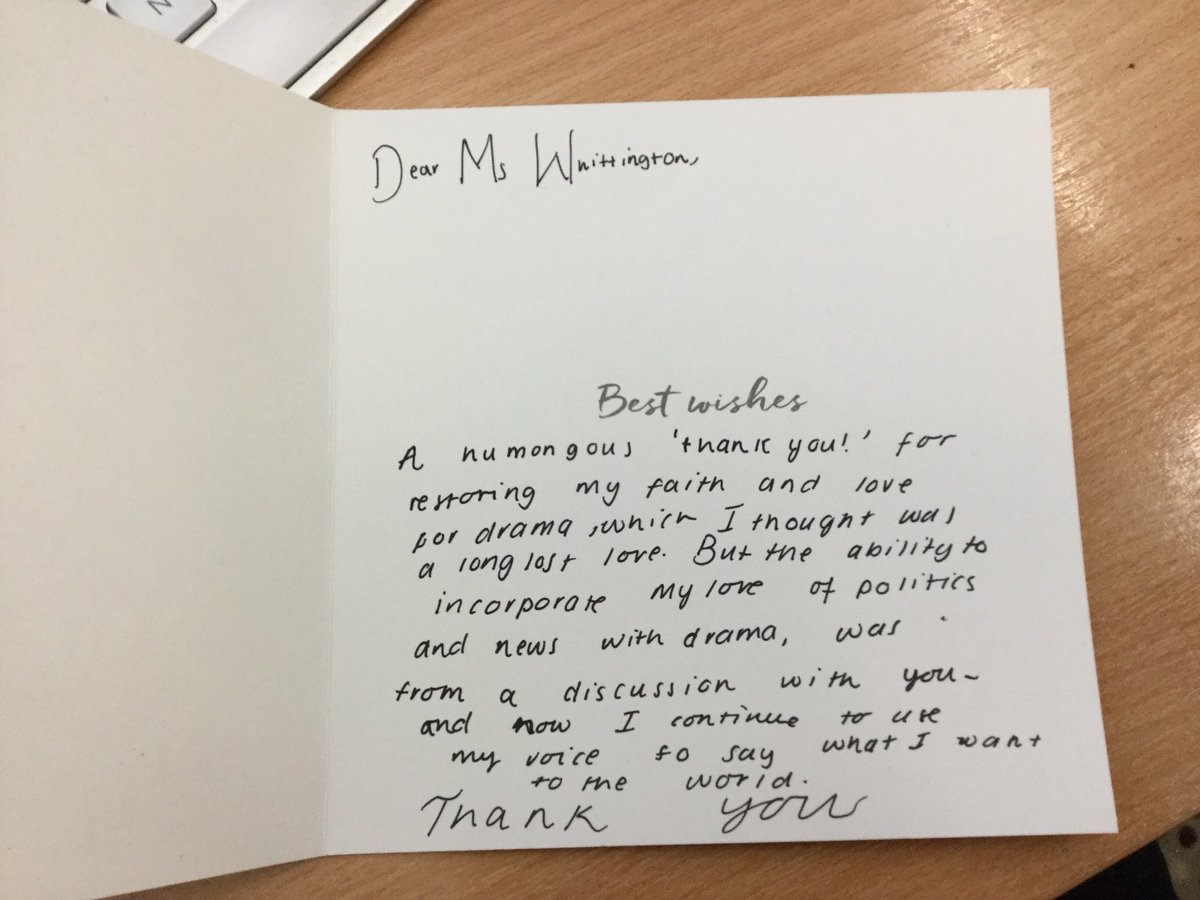 N
Dear Ms Whittington,
Best wishes
A humongous 'thank you!' for
restoring my faith and love
for drama, which I thought was
a long lost love. But the ability to
incorporate my love of politics
and news with drama, was
from a discussion with you-
and now I continue to use
my voice to say what I want
to the world.
Thank you